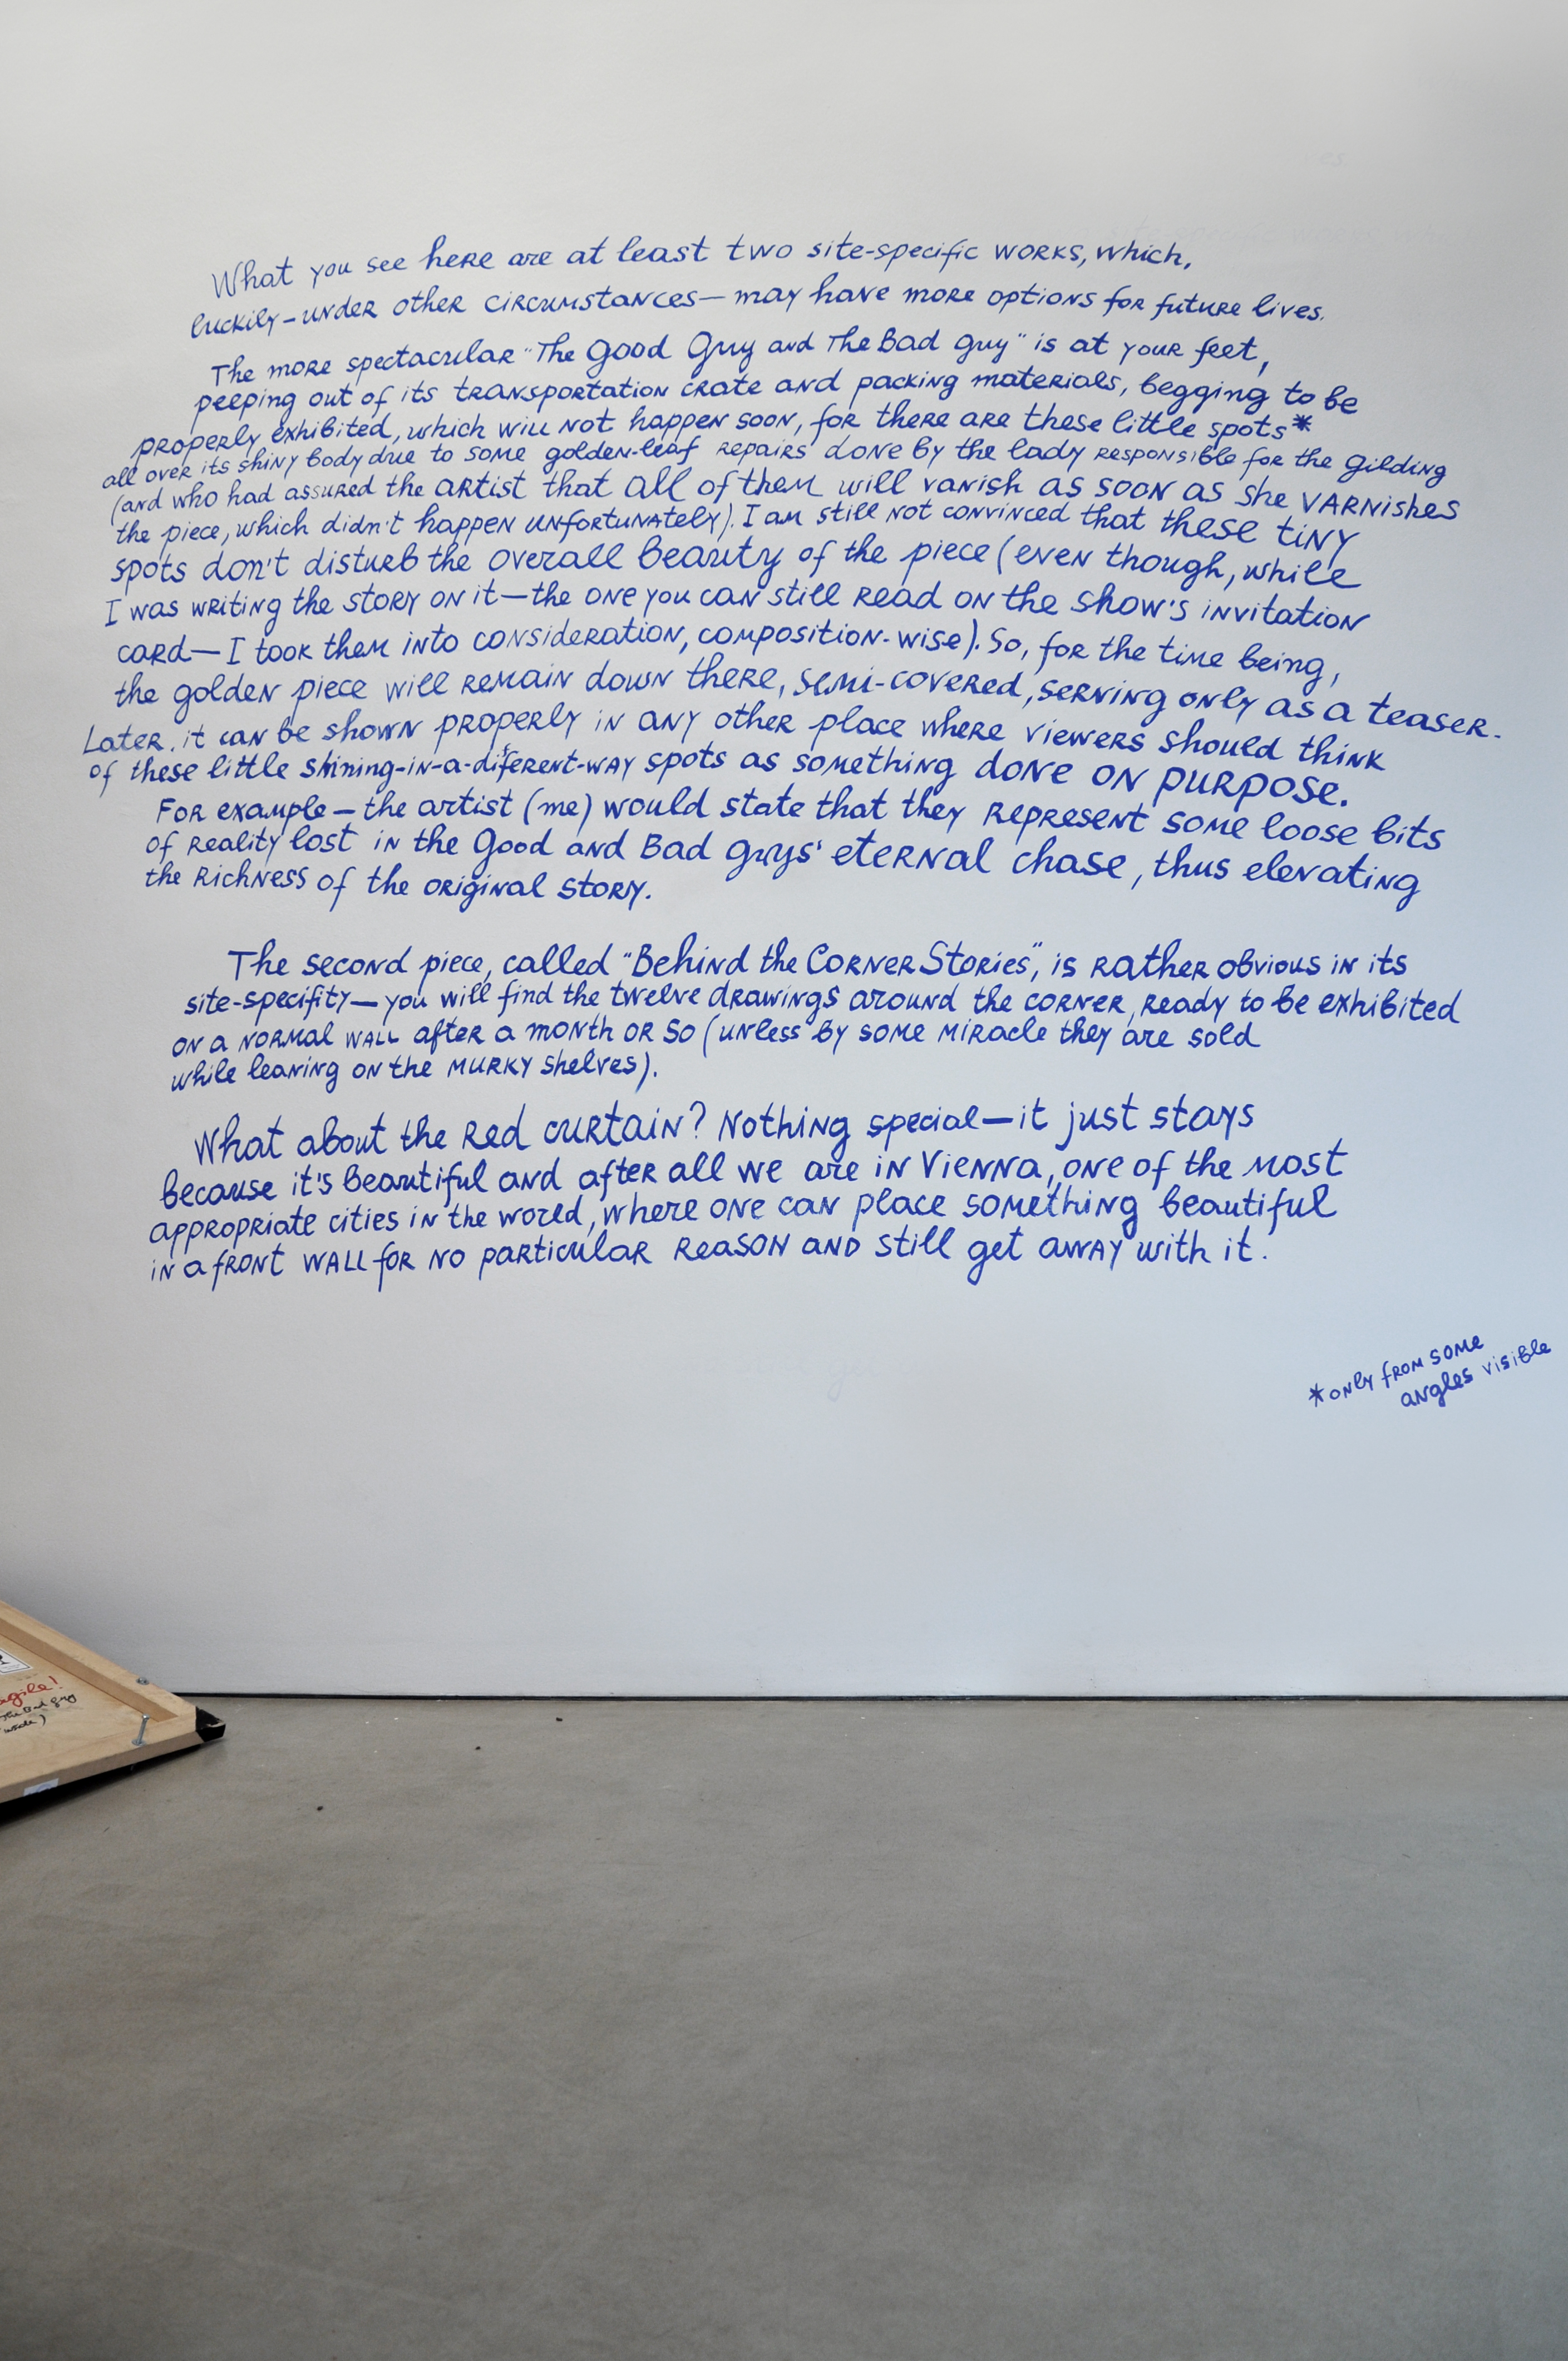 What you see here are at least two site-specific works, which,
luckily – under other circumstances — may have more options for future lives.
The more spectacular "The Good Guy and The Bad guy" is at your feet,
peeping out of its transportation crate and packing materials, begging to be
properly exhibited, which will not happen soon, for there are these little spots*
all over its shiny body due to some golden-leaf repairs done by the lady responsible for the gilding
(and who had assured the artist that all of them will vanish as soon as she varnishes
the piece, which didn't happen unfortunately). I am still not convinced that these tiny
spots don't disturb the overall beauty of the piece (even though, while
I was writing the story on it — the one you can still read on the show's invitation
card — I took them into consideration, composition-wise). So, for the time being,
the golden piece will remain down there, semi-covered, serving only as a teaser.
Later, it can be shown properly in any other place where viewers should think
of these little shining-in-a-different-way spots as something done on purpose.
For example – the artist (me) would state that they represent some loose bits
of reality lost in the Good and Bad guys' eternal chase, thus elevating
the richness of the original story.
The second piece, called "Behind the Corner Stories", is rather obvious in its
site-specifity — you will find the twelve drawings around the corner, ready to be exhibited
on a normal wall after a month or so (unless by some miracle they are sold
while leaning on the murky shelves).
What about the red curtain? Nothing special — it just stays
because it's beautiful and after all we are in Vienna, one of the most
appropriate cities in the world, where one can place something beautiful
in a front wall for no particular reason and still get away with it.
*only from some
angles visible
agile!
The Bad guy